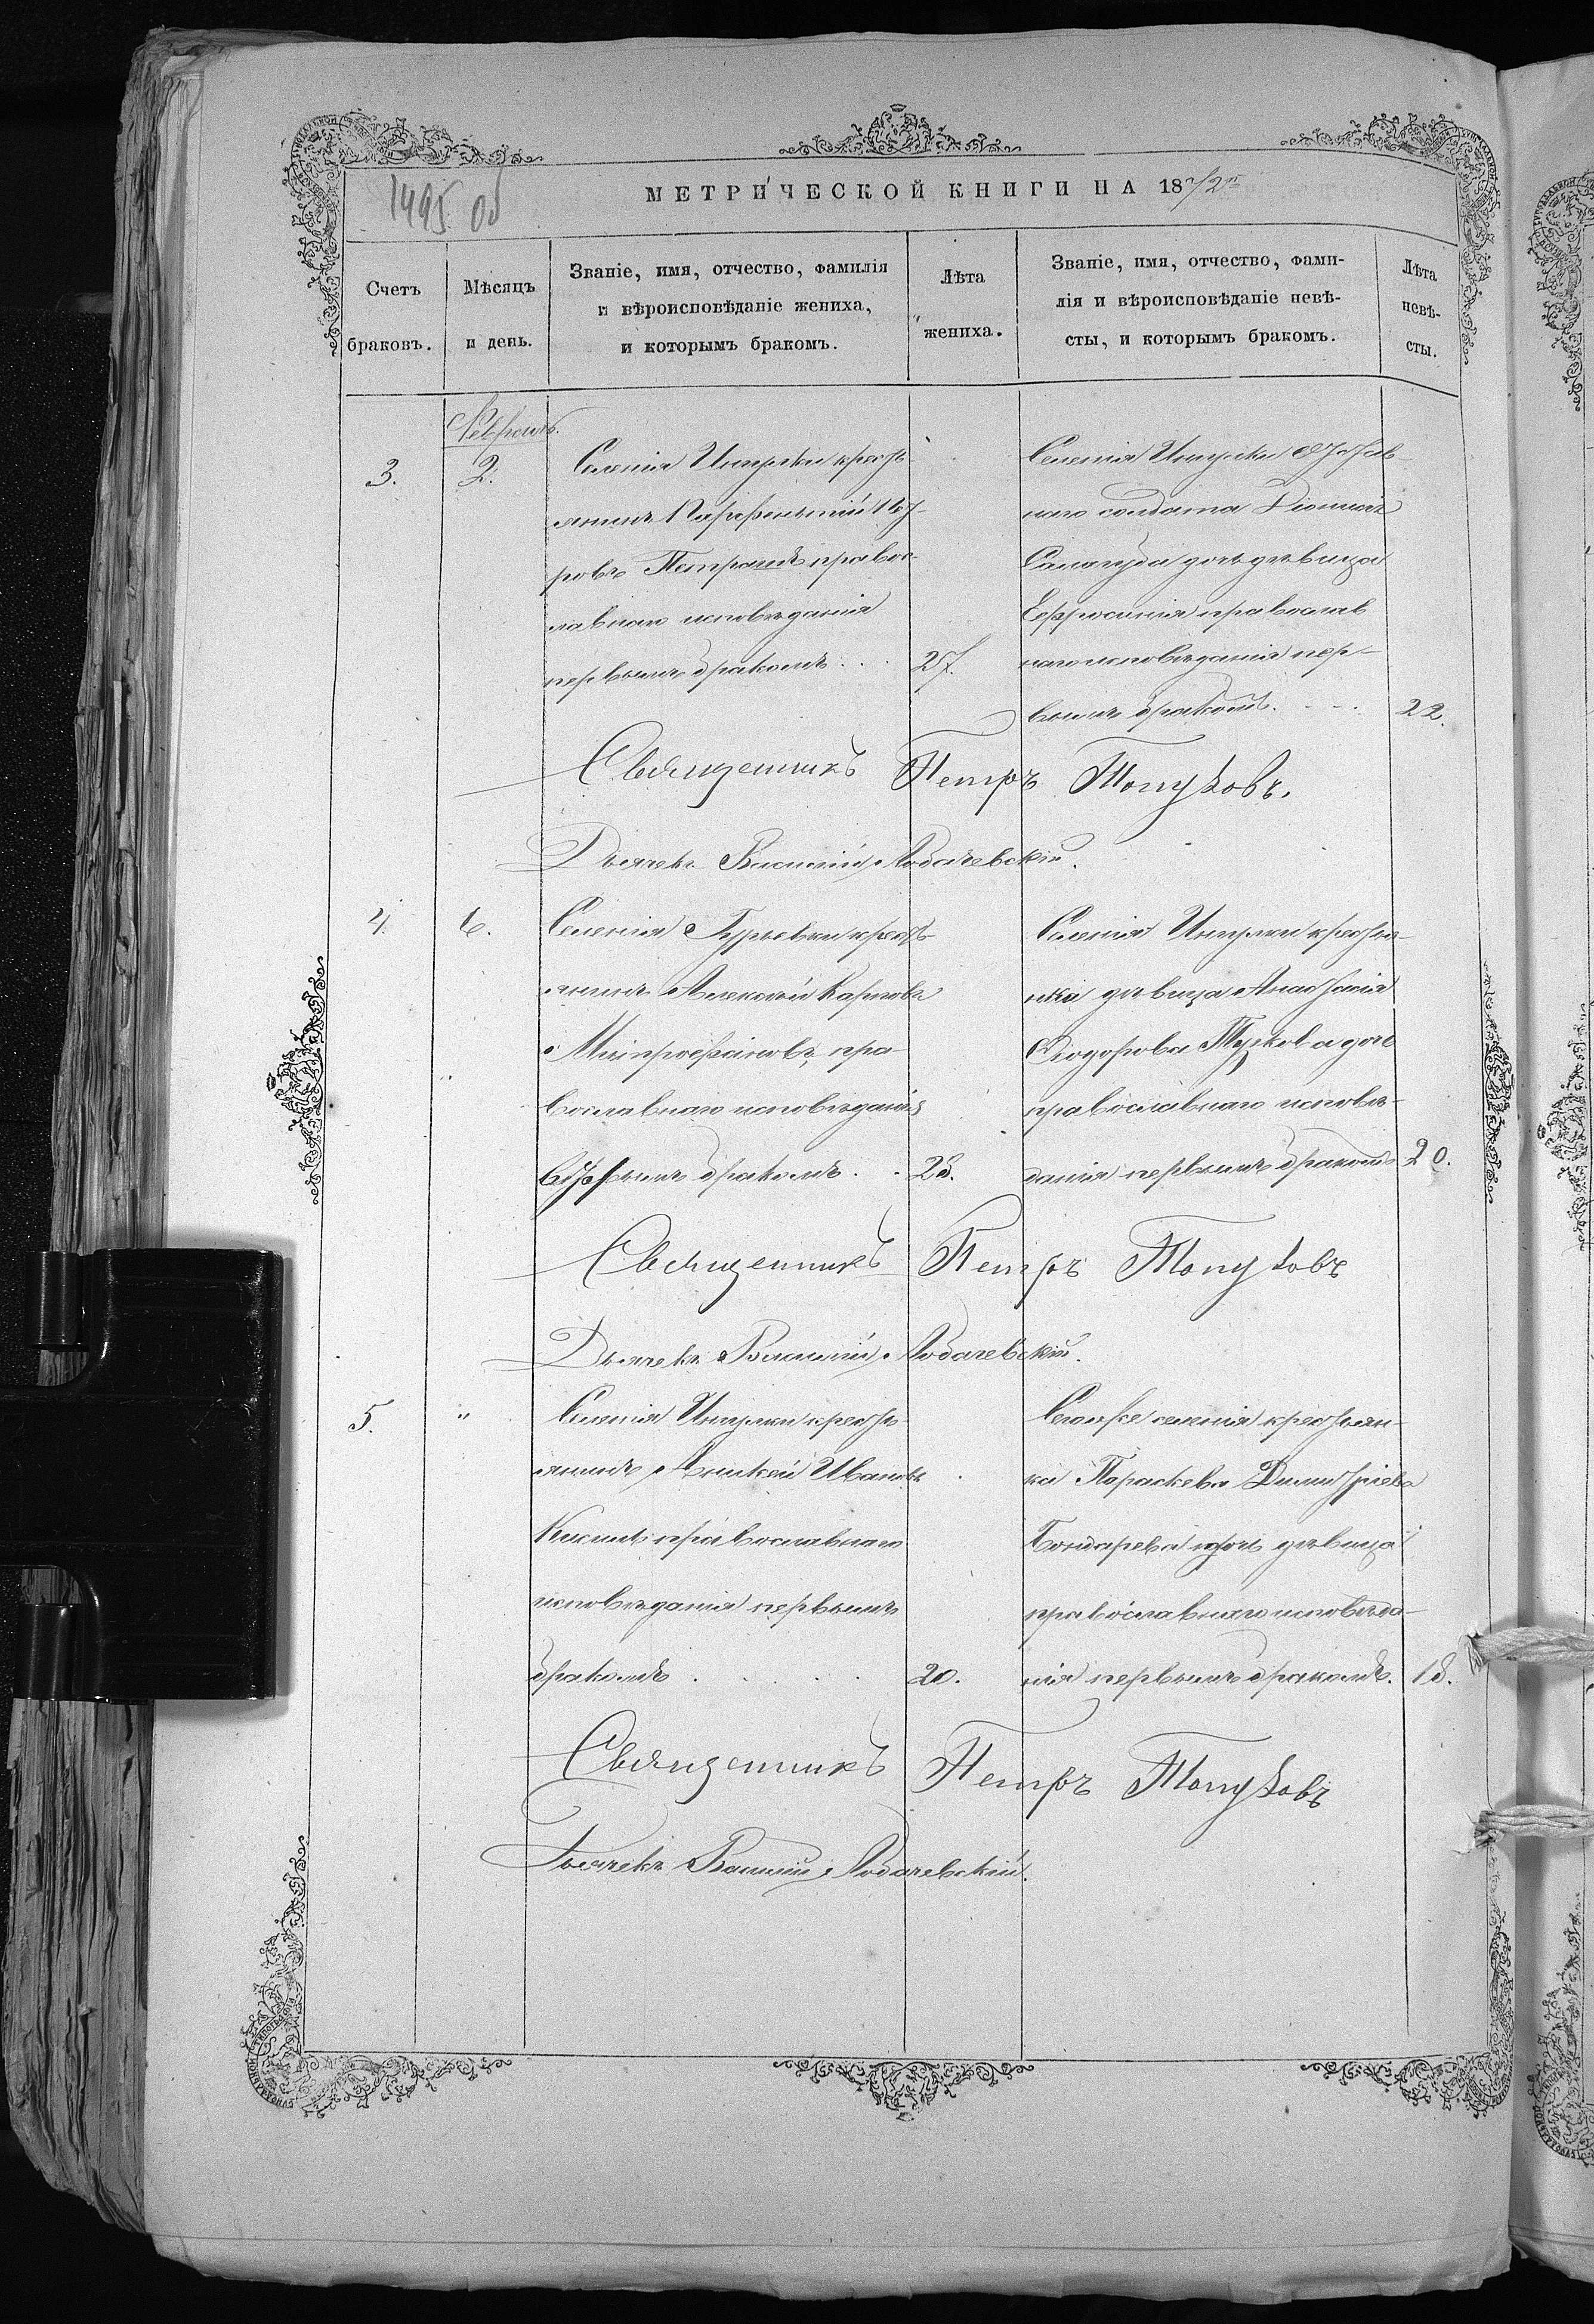 1495 об
МЕТРИЧЕСКОЙ КНИГИ НА 1872й
Счетъ браковъ.
Мѣсяцъ и день.
Званіе, имя, отчество, фамилія
и вѣроисповѣданіе жениха,
и которымъ бракомъ.
Лѣта
жениха.
Званіе, имя, отчество, фами-
лія и вѣроисповѣданіе невѣ-
сты, и которымъ бракомъ.
Лѣта
невѣ-
сты.
Февраль.
3.
2.
Селенія Ингулки кресть
янинъ
ровъ правос-
лавнаго исповѣданія
первымъ бракомъ . . .
27.
Селенія Ингулки отстав
наго солдата Діонисія
дочь дѣвица
Ефросинія православ
наго исповѣданія пер-
вымъ бракомъ. . . .
22.
Священникъ Петръ Топузовъ.
Дьячекъ Василій Лобачевскій.
4.
6.
Селенія Гурьевки кресть
янинъ Алексѣй Карповъ
Митрофановъ, пра-
вославнаго исповѣданія
вторымъ бракомъ. .
28.
Селенія Ингулки крестья-
нка дѣвица Анастасія
Ѳеодорова дочь
православнаго исповѣ-
данія первымъ бракомъ
20.
Священникъ Петръ Топузовъ
Дьячекъ Василій Лобачевскій.
5.
"
Селенія Ингулки кресть-
янинъ Ивановъ
православнаго
исповѣданія первымъ
бракомъ . . . . .
20.
Того же селенія крестьян-
ка Параскева Димитріева
Бондарева дочь дѣвица
православнаго исповѣда-
нія первымъ бракомъ.
18.
Священникъ Петръ Топузовъ
Дьячекъ Василій Лобачевскій.